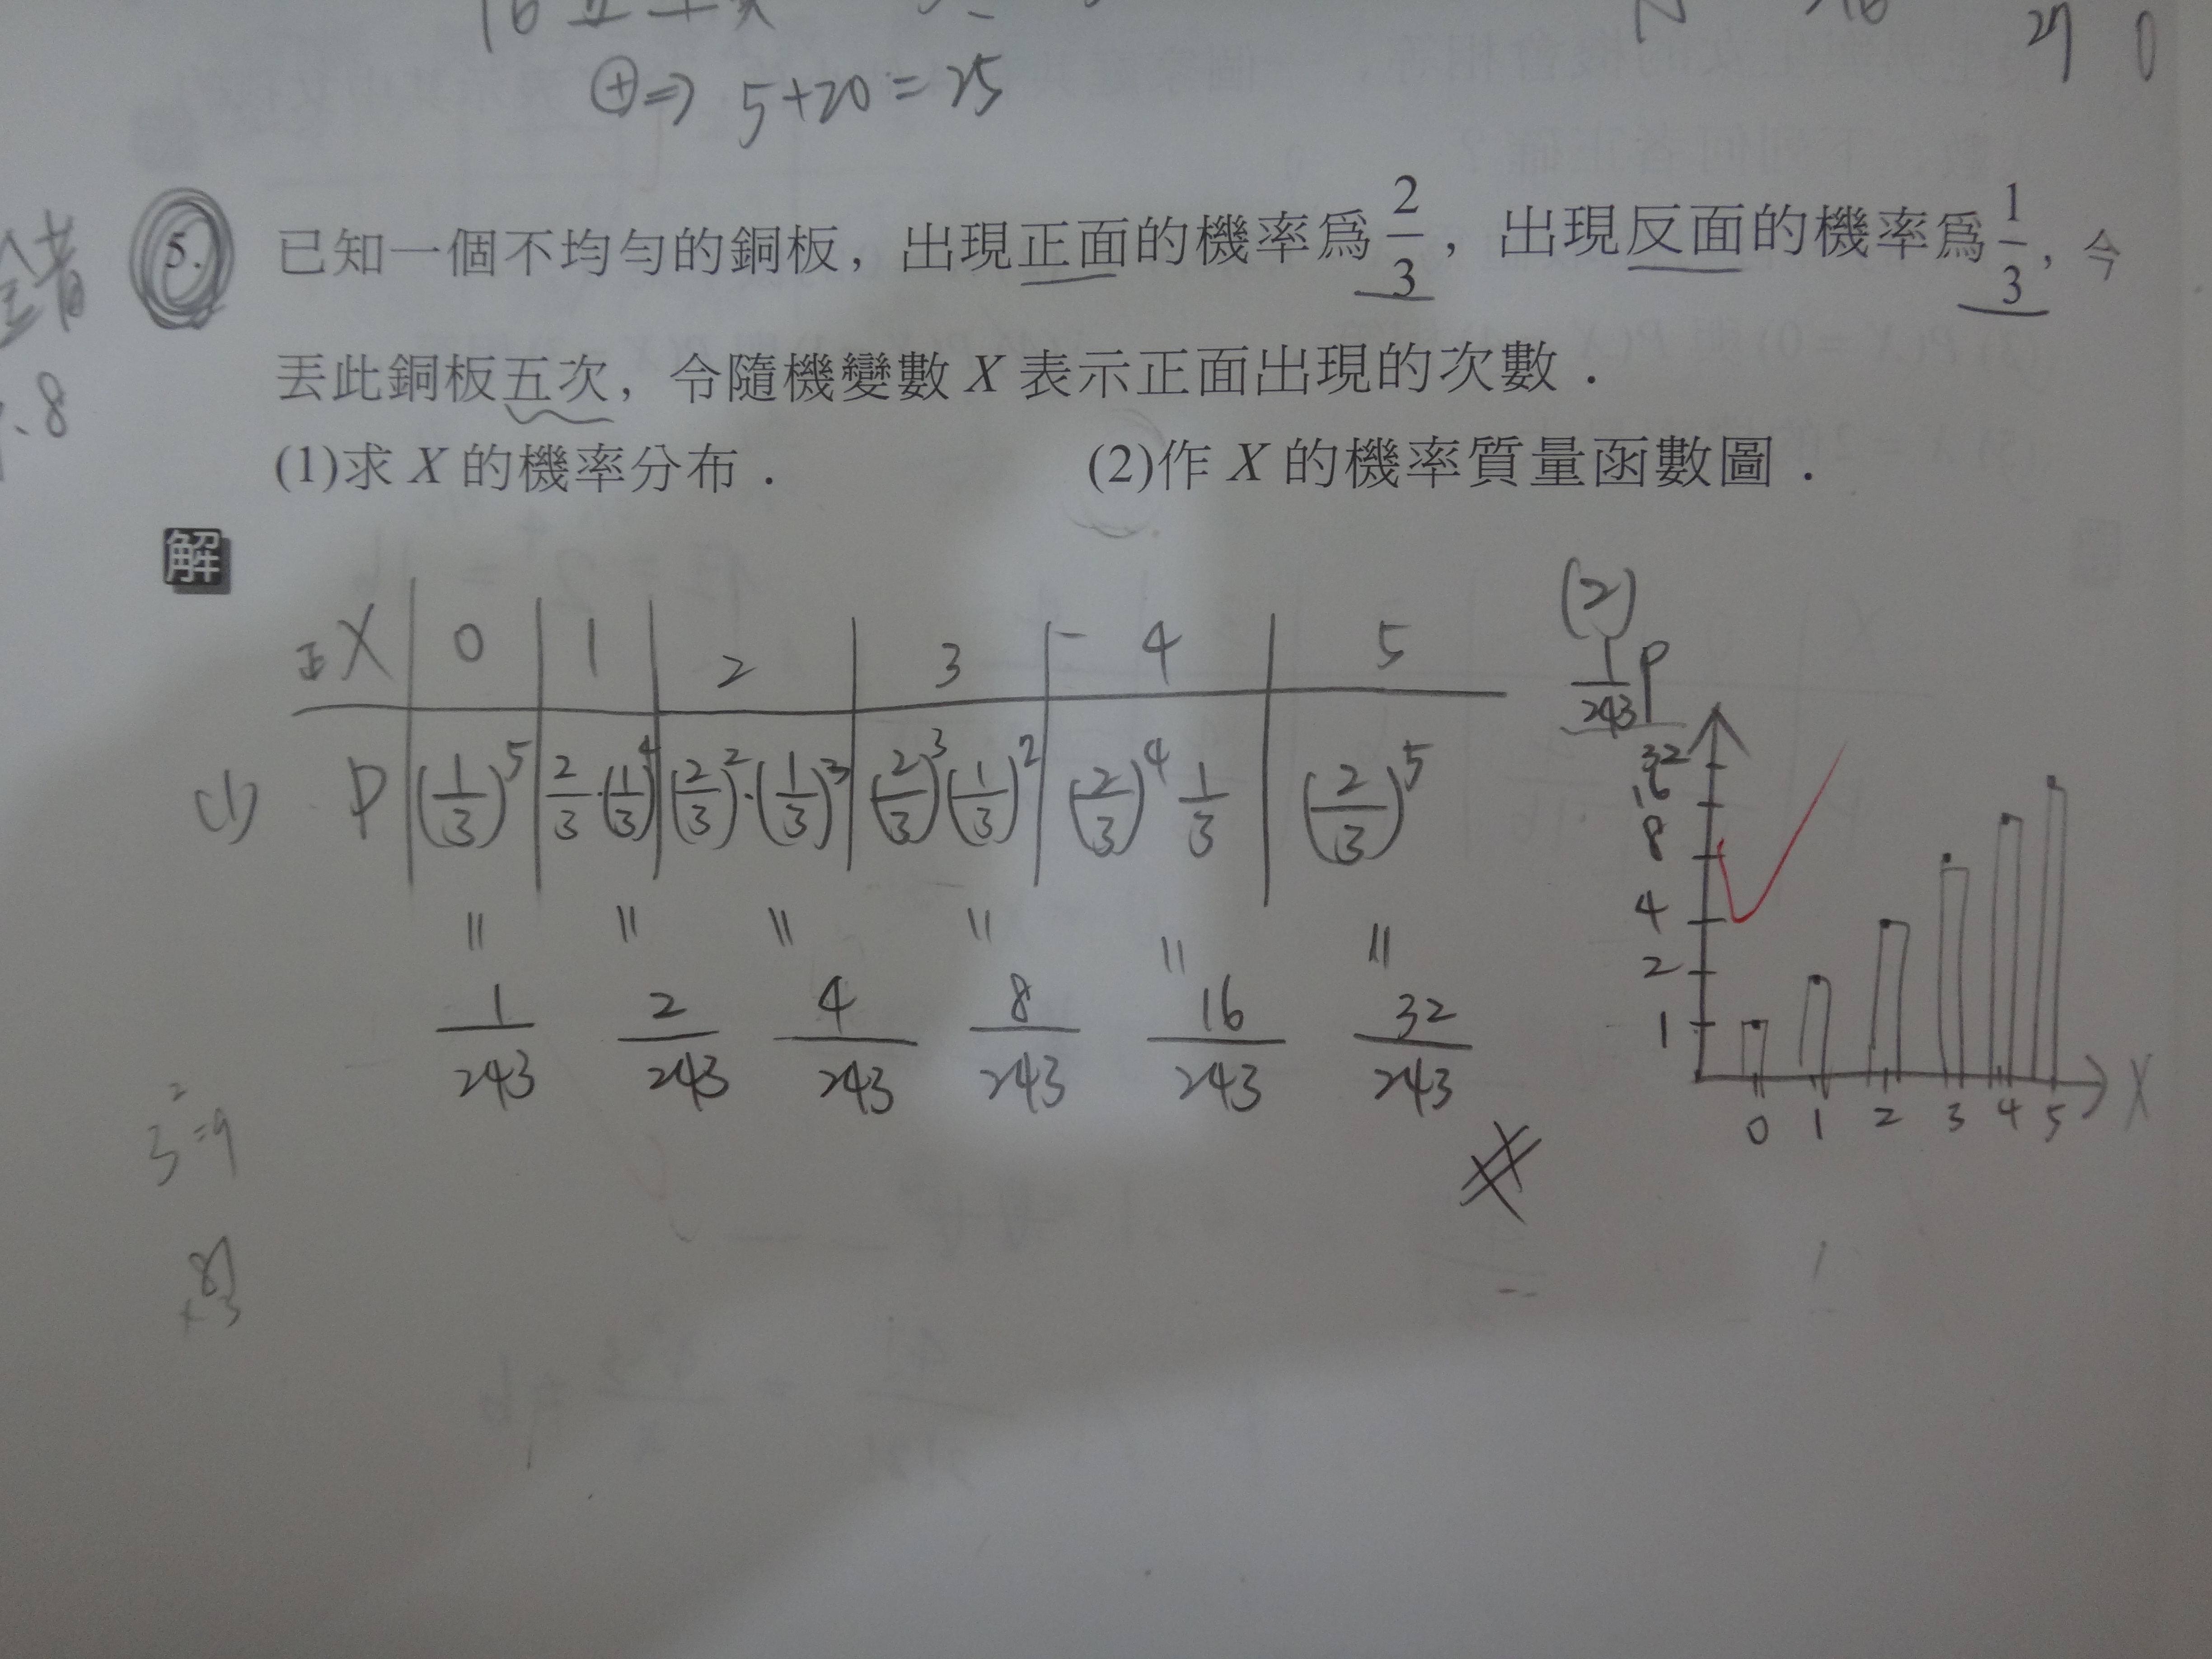 ⊕⇒ 5+20=25
5. 已知一個不均勻的銅板，出現正面的機率為 2/3，出現反面的機率為 1/3，今
丟此銅板五次，令隨機變數 X 表示正面出現的次數．
(1)求 X 的機率分布． (2)作 X 的機率質量函數圖．
解
正X | 0 | 1 | 2 | 3 | 4 | 5
(1) P | (1/3)^5 | 2/3·(1/3)^4 | (2/3)^2·(1/3)^3 | (2/3)^3(1/3)^2 | (2/3)^4 1/3 | (2/3)^5
= = = = = =
1/243 2/243 4/243 8/243 16/243 32/243
(2)
1/243 P
32
16
8
4
2
1
0 1 2 3 4 5 X
3^2=9
81
×3